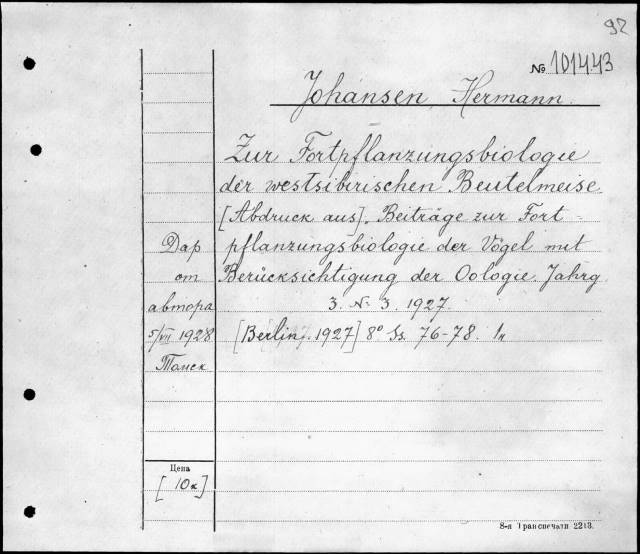 92
№ 101443
Johansen, Hermann.
Zur Fortpflanzungsbiologie
der westsibirischen Beutelmeise.
[Abdruck aus]. Beiträge zur Fort=
pflanzungsbiologie der Vögel mit
Berücksichtigung der Oologie. Jahrg
3. N: 3. 1927.
[Berlin. 1927] 8° Ss. 76-78.
Дар
от
автора
5/VII 1928
Томск
Цена
[10к]
8-я Транспечати 2213.